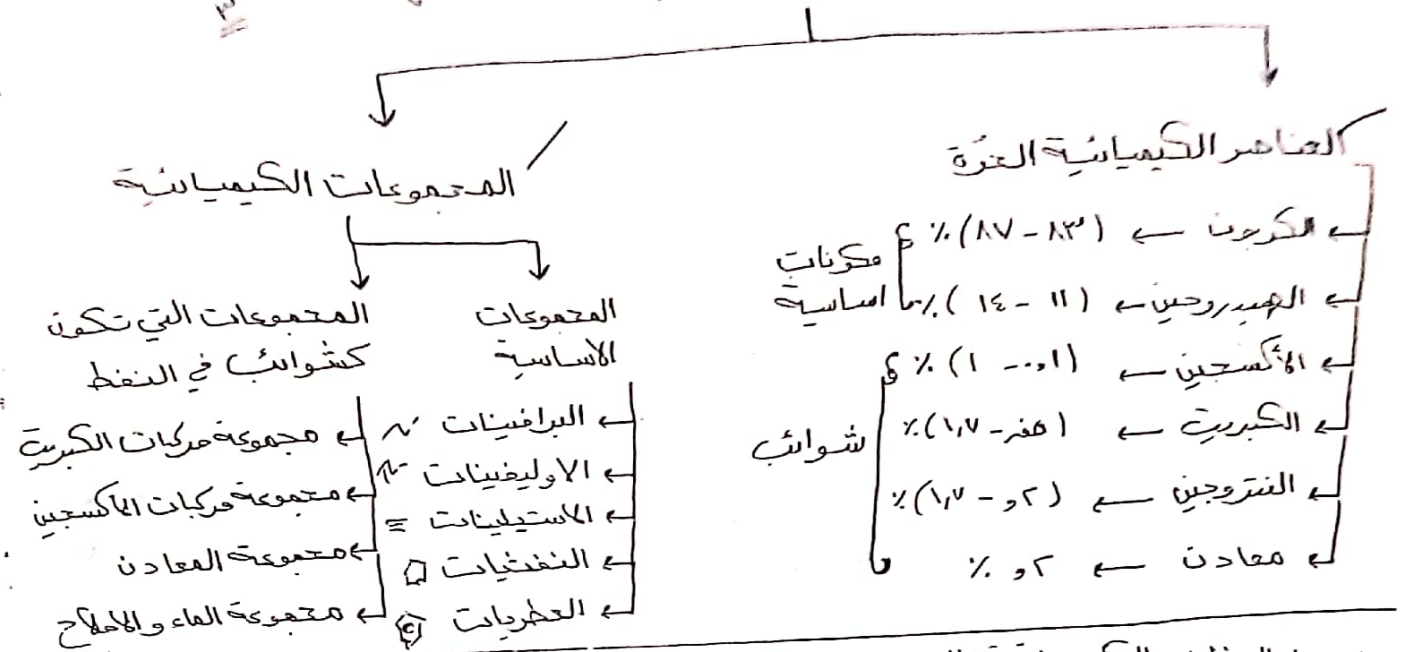 ٣
العناصر الكيميائية الحرة
الكربون ← (٨٣ - ٨٧)٪
الهيدروجين ← (١١ - ١٤)٪
مكونات اساسية
الأكسجين ← (٠,٠١ - ١)٪
الكبريت ← (صفر - ١,٧)٪
النتروجين ← (٢و - ١,٧)٪
معادن ← ٢و ٪
شوائب
المجموعات الكيميائية
المجموعات
الاساسية
البرافينات
الاوليفينات
الاستيلينات ≡
النفثيات
العطريات
المجموعات التي تكون
كشوائب في النفط
مجموعة مركبات الكبريت
مجموعة مركبات الاكسجين
مجموعة المعادن
مجموعة الماء والاملاح